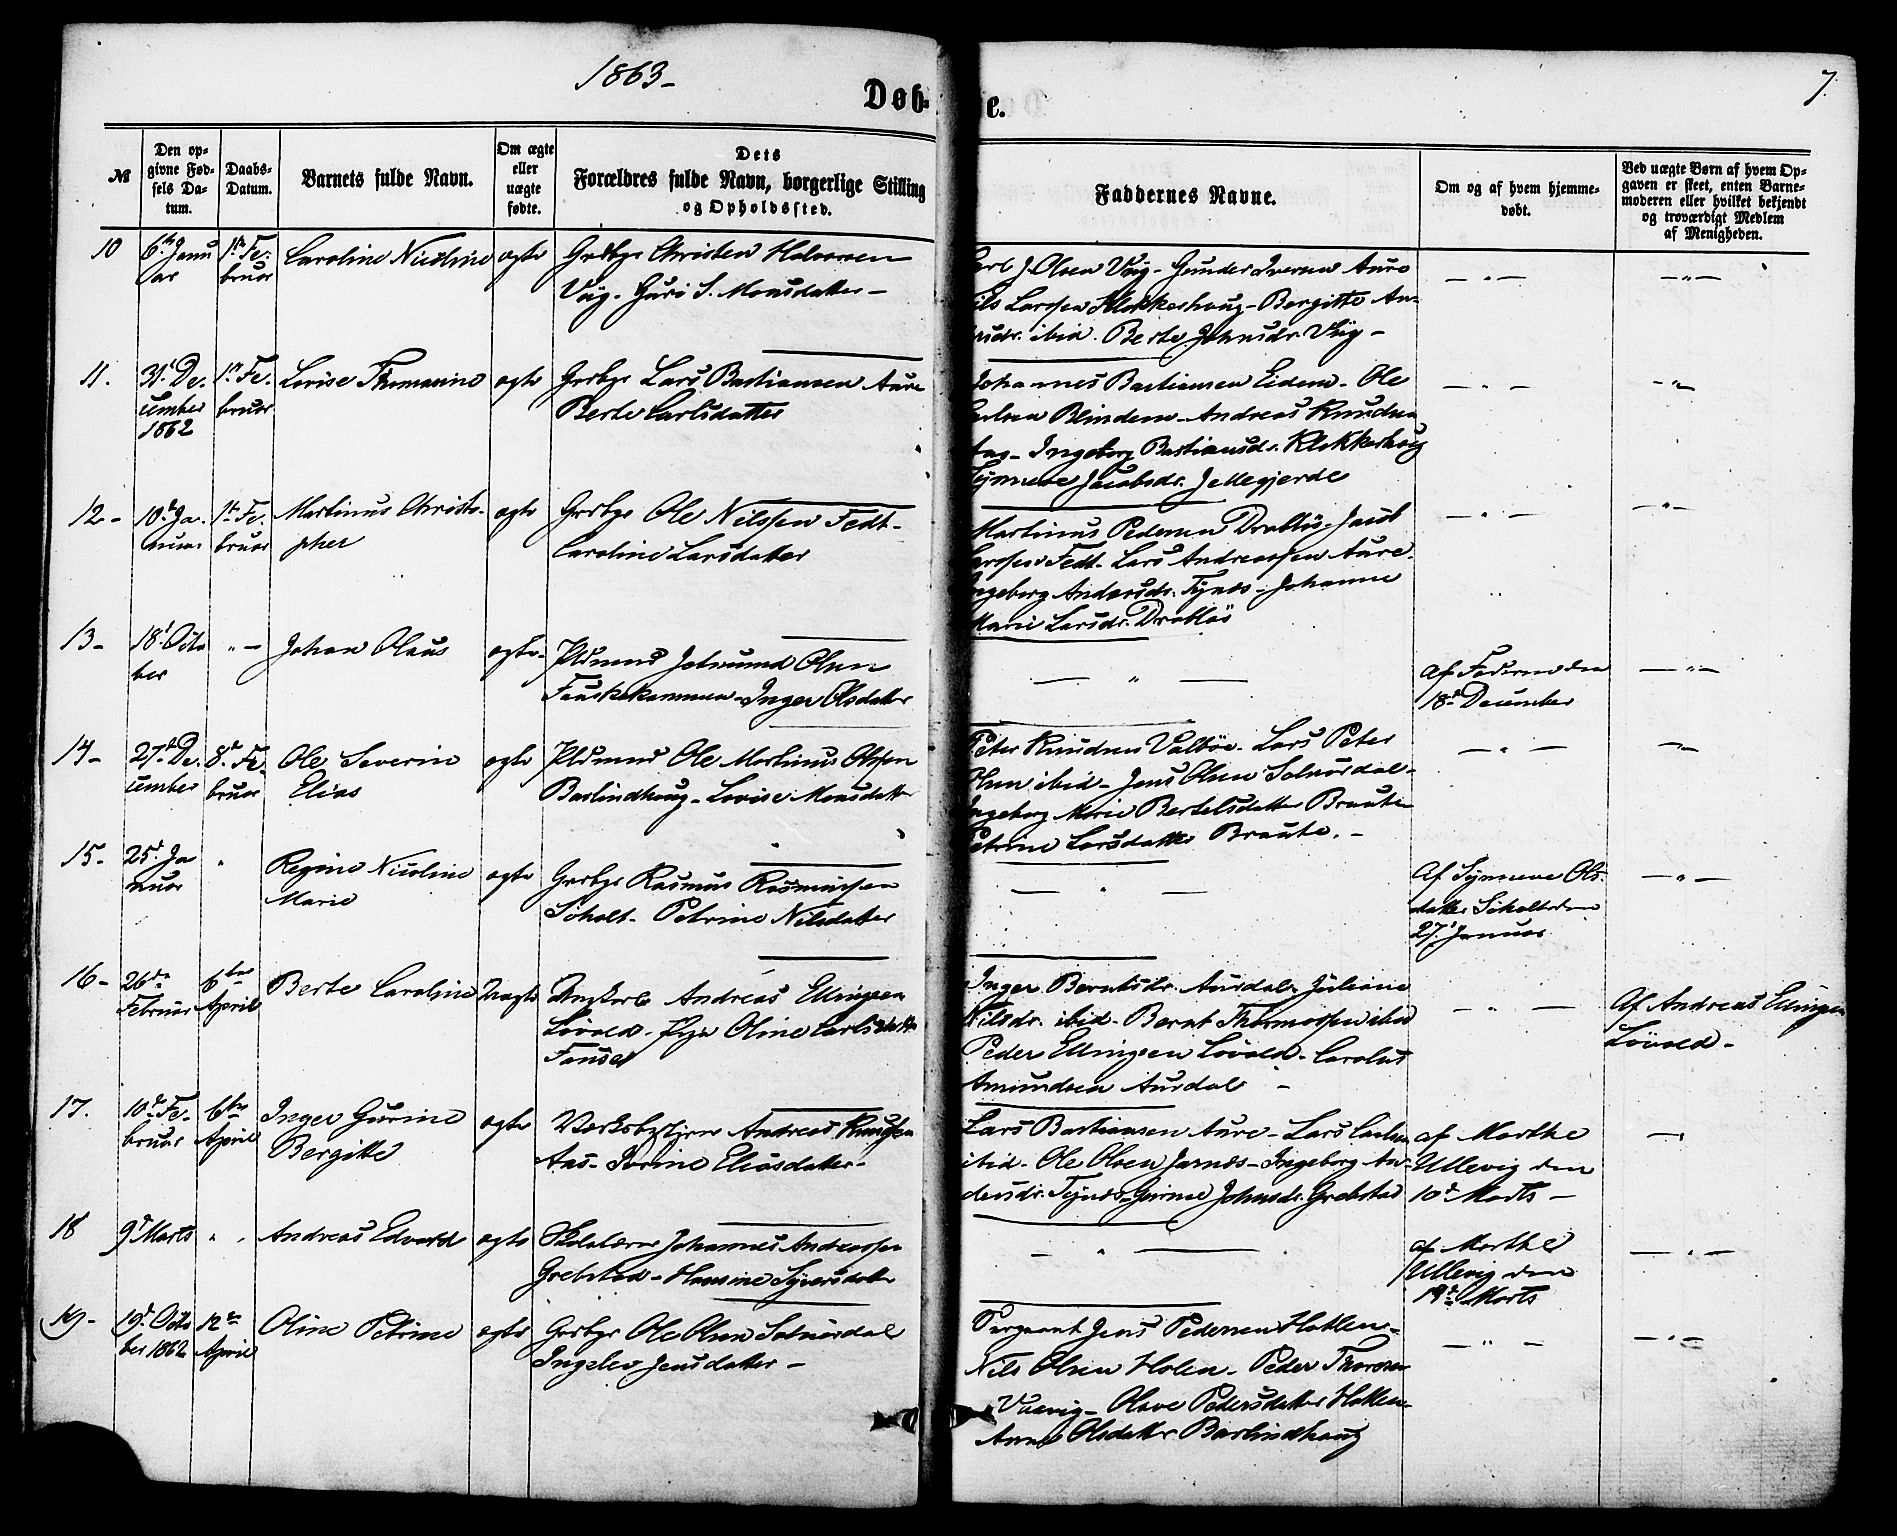 1863-
7.
Døb-
e.
№
Den op-
givne Fød-
sels Da-
tum.
Daabs-
Datum.
Barnets fulde Navn.
Om ægte
eller
uægte
fødte.
Dets
Forældres fulde Navn, borgerlige Stilling
og Opholdssted.
Faddernes Navne.
Om og af hvem hjemme-
døbt.
Ved uægte Børn af hvem Op-
gaven er skeet, enten Barne-
moderen eller hvilket bekjendt
og troværdigt Medlem
af Menigheden.
10
6te Janu
ar
1te Fe-
bruar
Caroline Nicoline
ægte
Grdbgr Christen Halvorsen
Viig. Guri S. Monsdatter -
Carl J. Olsen Viig - Gunder Iversen Aure
Nils Larssen Klokkerhoug - Bergitte An-
ibid. Berte Johnsdr. Viig -
11.
31t De-
cember
1862
1te Fe-
bruar
Lovise Thomasine
ægte
Grdbgr Lars Bastiansen Aure
Berte Carlsdatter
Johannes Bastiansen Eidem - Ole
Carlsen Blindem - Andreas Knudsen
Aas - Ingeborg Bastiansdr. Klokkerhoug
Synneve Jacobsdr. Jellegjerde
12 -
10de Ja-
nuar
1te Fe-
bruar
Martinus Christo-
pher
ægte
Grdbgr Ole Nilssen Fedt -
Caroline Larsdatter
Martinus Pedersen Drabløs - Jacob
Larssen Fedt - Lars Andreassen Aure -
Ingeborg Andersdr. Tynes - Johanne
Marie Larsdr. Drabløs
13 -
18d Octo
ber
" -
Johan Olaus
ægte -
Pldsmand Jetmund Olsen
Inger Olsdatter
af Faderen den
18de December
14 -
27de De-
cember
8de Fe-
bruar
Ole Severin
Elias
ægte
Pldsmand Ole Martinus Olssen
Barlindhoug - Lovise Monsdatter
Peter Knudsen Valbøe - Lars Peter
Olsen ibid - Jens Olsen Solnørdal -
Ingeborg Marie Bertelsdatter Braute
Petrine Larsdatter Braute. -
15 -
25d Ja
nuar
"
Regine Nicoline
Marie
ægte
Grdbgr Rasmus Rasmussen
Scholt - Petrine Nilsdatter
Af Synneve Ols-
datter Scholt den
27d Januar
16 -
26de
Februar
6te
April
Berte Caroline
Uægte
Ungkarl Andreas Ellingsen
Løvold - Pige Oline Carlsdatter
Inger Berntsdr. Aursdal - Juliane
Nilsdr. ibid - Bernt Thomassen ibid
Peder Ellingsen Løvold - Carolus
Amundsen Aursdal -
Af Andreas Ellingsen
Løvold -
17.
10d Fe-
bruar
6te
April
Inger Gurine
Bergitte
ægte
Værksbestyrer Andreas Knudsen
Aas - Ivrine Eliasdatter -
Lars Bastiansen Aure - Lars Carlsen
ibid - Ole Olsen - Ingeborg An-
dersdr. Tynes - Gurine Johnsdr. Grebstad
af Marthe
Ullevig den
10d Marts -
18
9d Marts
" .
Andreas Edvard
ægte
Skolelærer Johannes Andreassen
Grebstad - Hansine Syversdatter
af Marthe
Ullevig den
19de Marts
19 -
19d Octo
ber 1862
12te
April
Oline Petrine
ægte
Grdbgr Ole Olsen Solnørdal
Ingelev Jensdatter -
Sergeant Jens Pedersen Hatlen -
Nils Olsen Holen - Peder Thoresen
Olave Pedersdatter Hatlen -
Anne Olsdatter Barlindhoug